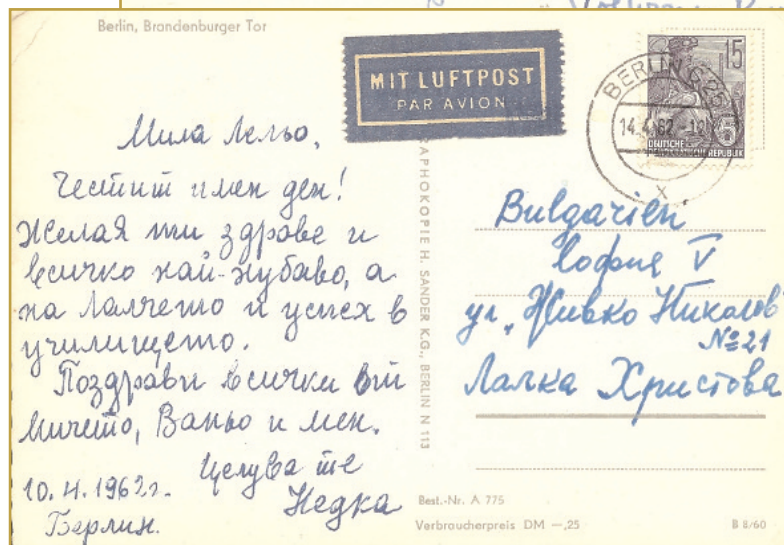 Berlin, Brandenburger Tor
MIT LUFTPOST
PAR AVION
15
BERLIN
14.4.62
DEUTSCHE
DEMOKRATISCHE REPUBLIK
Мила Лельо,
Честит имен ден!
Желая ти здраве и
всичко най-хубаво, а
на Лалчето и успех в
училището.
Поздрави всички от
Мичето, Ваньо и мен.
Целува те
Недка
10.4.1962г.
Берлин.
H. SANDER K.G., BERLIN N 113
Bulgarien
София V
ул. „Живко Николов"
№21
Лалка Христова
Best.-Nr. A 775
Verbraucherpreis DM —,25
B 8/60